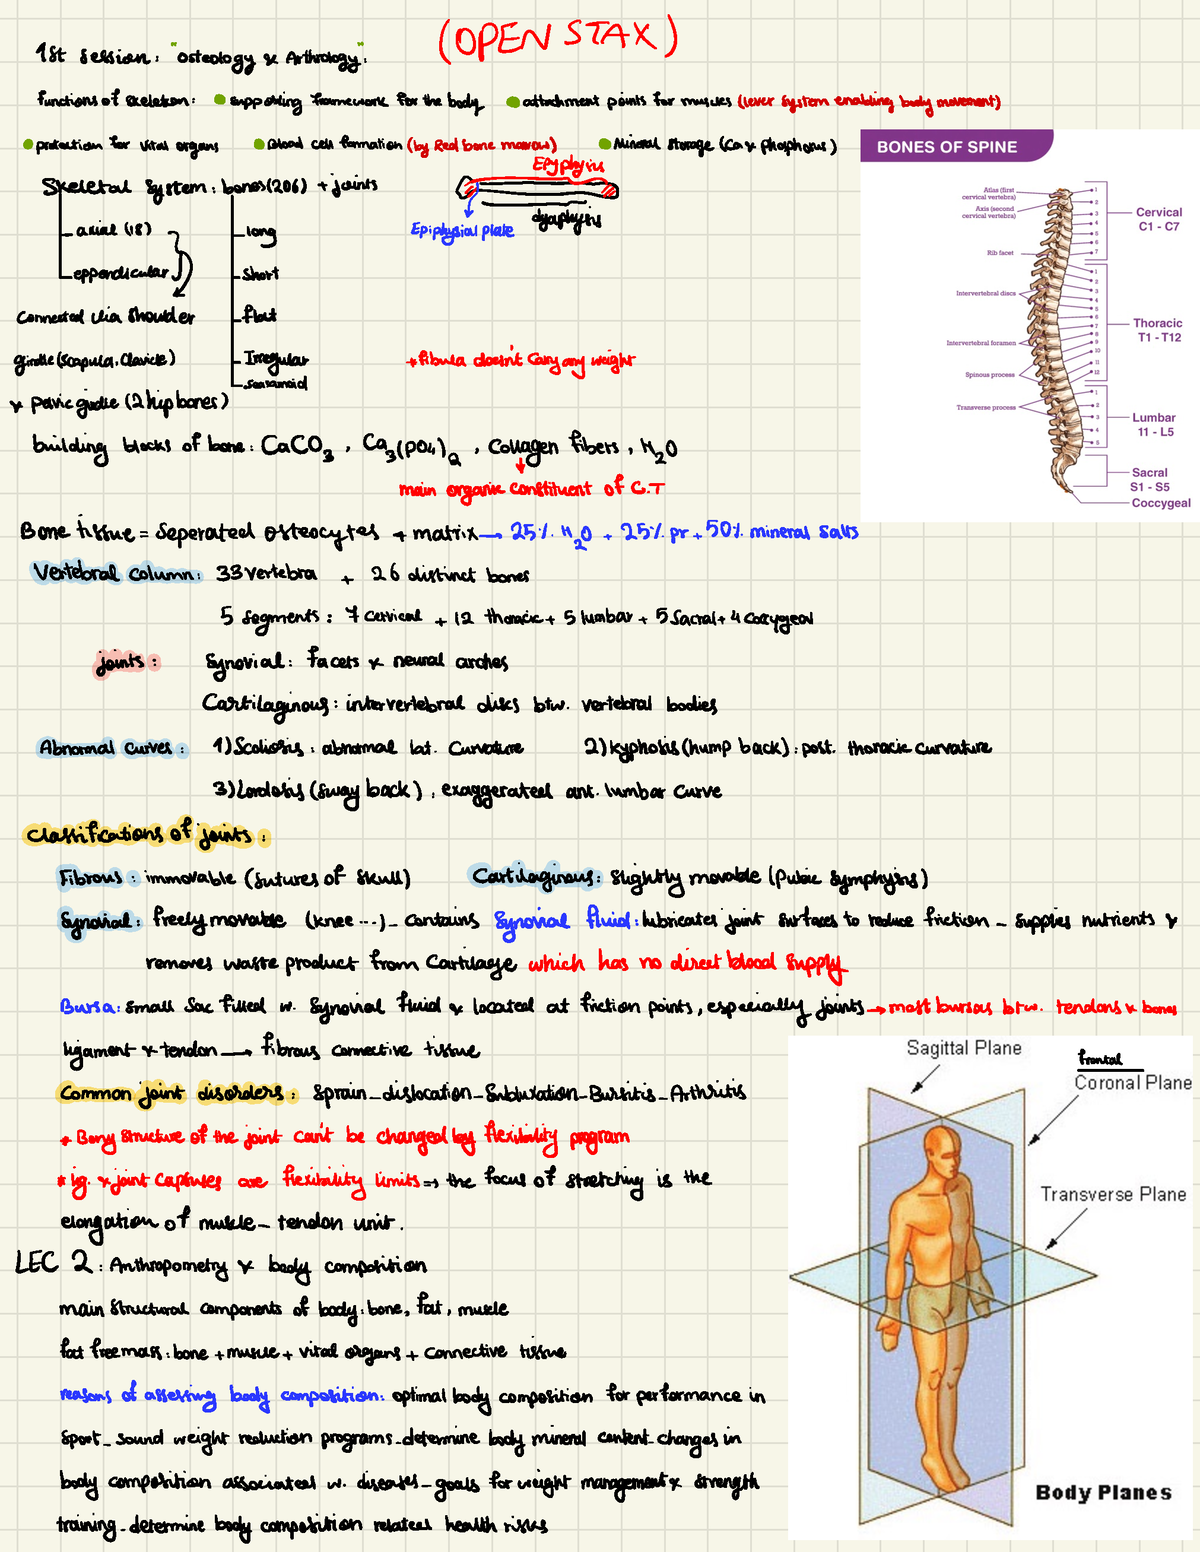 (OPEN STAX)
1st session: "osteology & Arthrology":
functions of skeleton: supporting framework for the body attachment points for muscles (lever system enabling body movement)
protection for vital organs Blood cell formation (by Red bone marrow) Mineral storage (Ca & phosphorus)
Skeletal System: bones (206) + joints
Epyphysis
dyaphysis
Epiphysial plate
axial (18)
long
epperdicular
Short
Connected via shoulder
flat
girdle (scapula, clavicle)
Irregular
+ fibula doesn't carry any weight
sesamoid
& pelvic girdle (2 hip bones)
building blocks of bone: CaCO3, Ca3(PO4)2, Collagen fibers, H2O
main organic constituent of C.T
Bone tissue = seperated osteocytes + matrix → 25% H2O + 25% pr + 50% mineral salts
Vertebral column: 33 vertebra + 26 distinct bones
5 segments: 7 cervical + 12 thoracic + 5 lumbar + 5 Sacral + 4 Coccygeal
joints: Synovial: facets & neural arches
Cartilaginous: intervertebral discs btw. vertebral bodies
Abnormal curves: 1) Scoliosis: abnormal lat. curvature 2) kyphosis (hump back): post. thoracic curvature
3) Lordosis (sway back), exaggerated ant. lumbar curve
Classifications of joints:
Fibrous: immovable (sutures of skull) Cartilaginous: slightly movable (Pubic symphysis)
Synovial: freely movable (knee ...) _ contains synovial fluid: lubricates joint surfaces to reduce friction _ supplies nutrients &
removes waste product from cartilage which has no direct blood supply
Bursa: small sac filled w. synovial fluid & located at friction points, especially joints → most bursas btw. tendons & bones
ligament & tendon → fibrous connective tissue
Common joint disorders: Sprain _ dislocation _ Subluxation _ Bursitis _ Arthritis
* Bony structure of the joint can't be changed by flexibility program
* lig. & joint capsules are flexibility limits ⇒ the focus of stretching is the
elongation of muscle _ tendon unit.
LEC 2: Anthropometry & body composition
main structural components of body: bone, fat, muscle
fat free mass: bone + muscle + vital organs + connective tissue
reasons of assessing body composition: optimal body composition for performance in
sport _ sound weight reduction programs _ determine body mineral content _ changes in
body composition associated w. diseases _ goals for weight management & strength
training _ determine body composition related health risks
BONES OF SPINE
Atlas (first
cervical vertebra)
Axis (second
cervical vertebra)
Rib facet
Intervertebral discs
Intervertebral foramen
Spinous process
Transverse process
1
2
3
4
5
6
7
1
2
3
4
5
6
7
8
9
10
11
12
1
2
3
4
5
Cervical
C1 - C7
Thoracic
T1 - T12
Lumbar
11 - L5
Sacral
S1 - S5
Coccygeal
Sagittal Plane
frontal
Coronal Plane
Transverse Plane
Body Planes